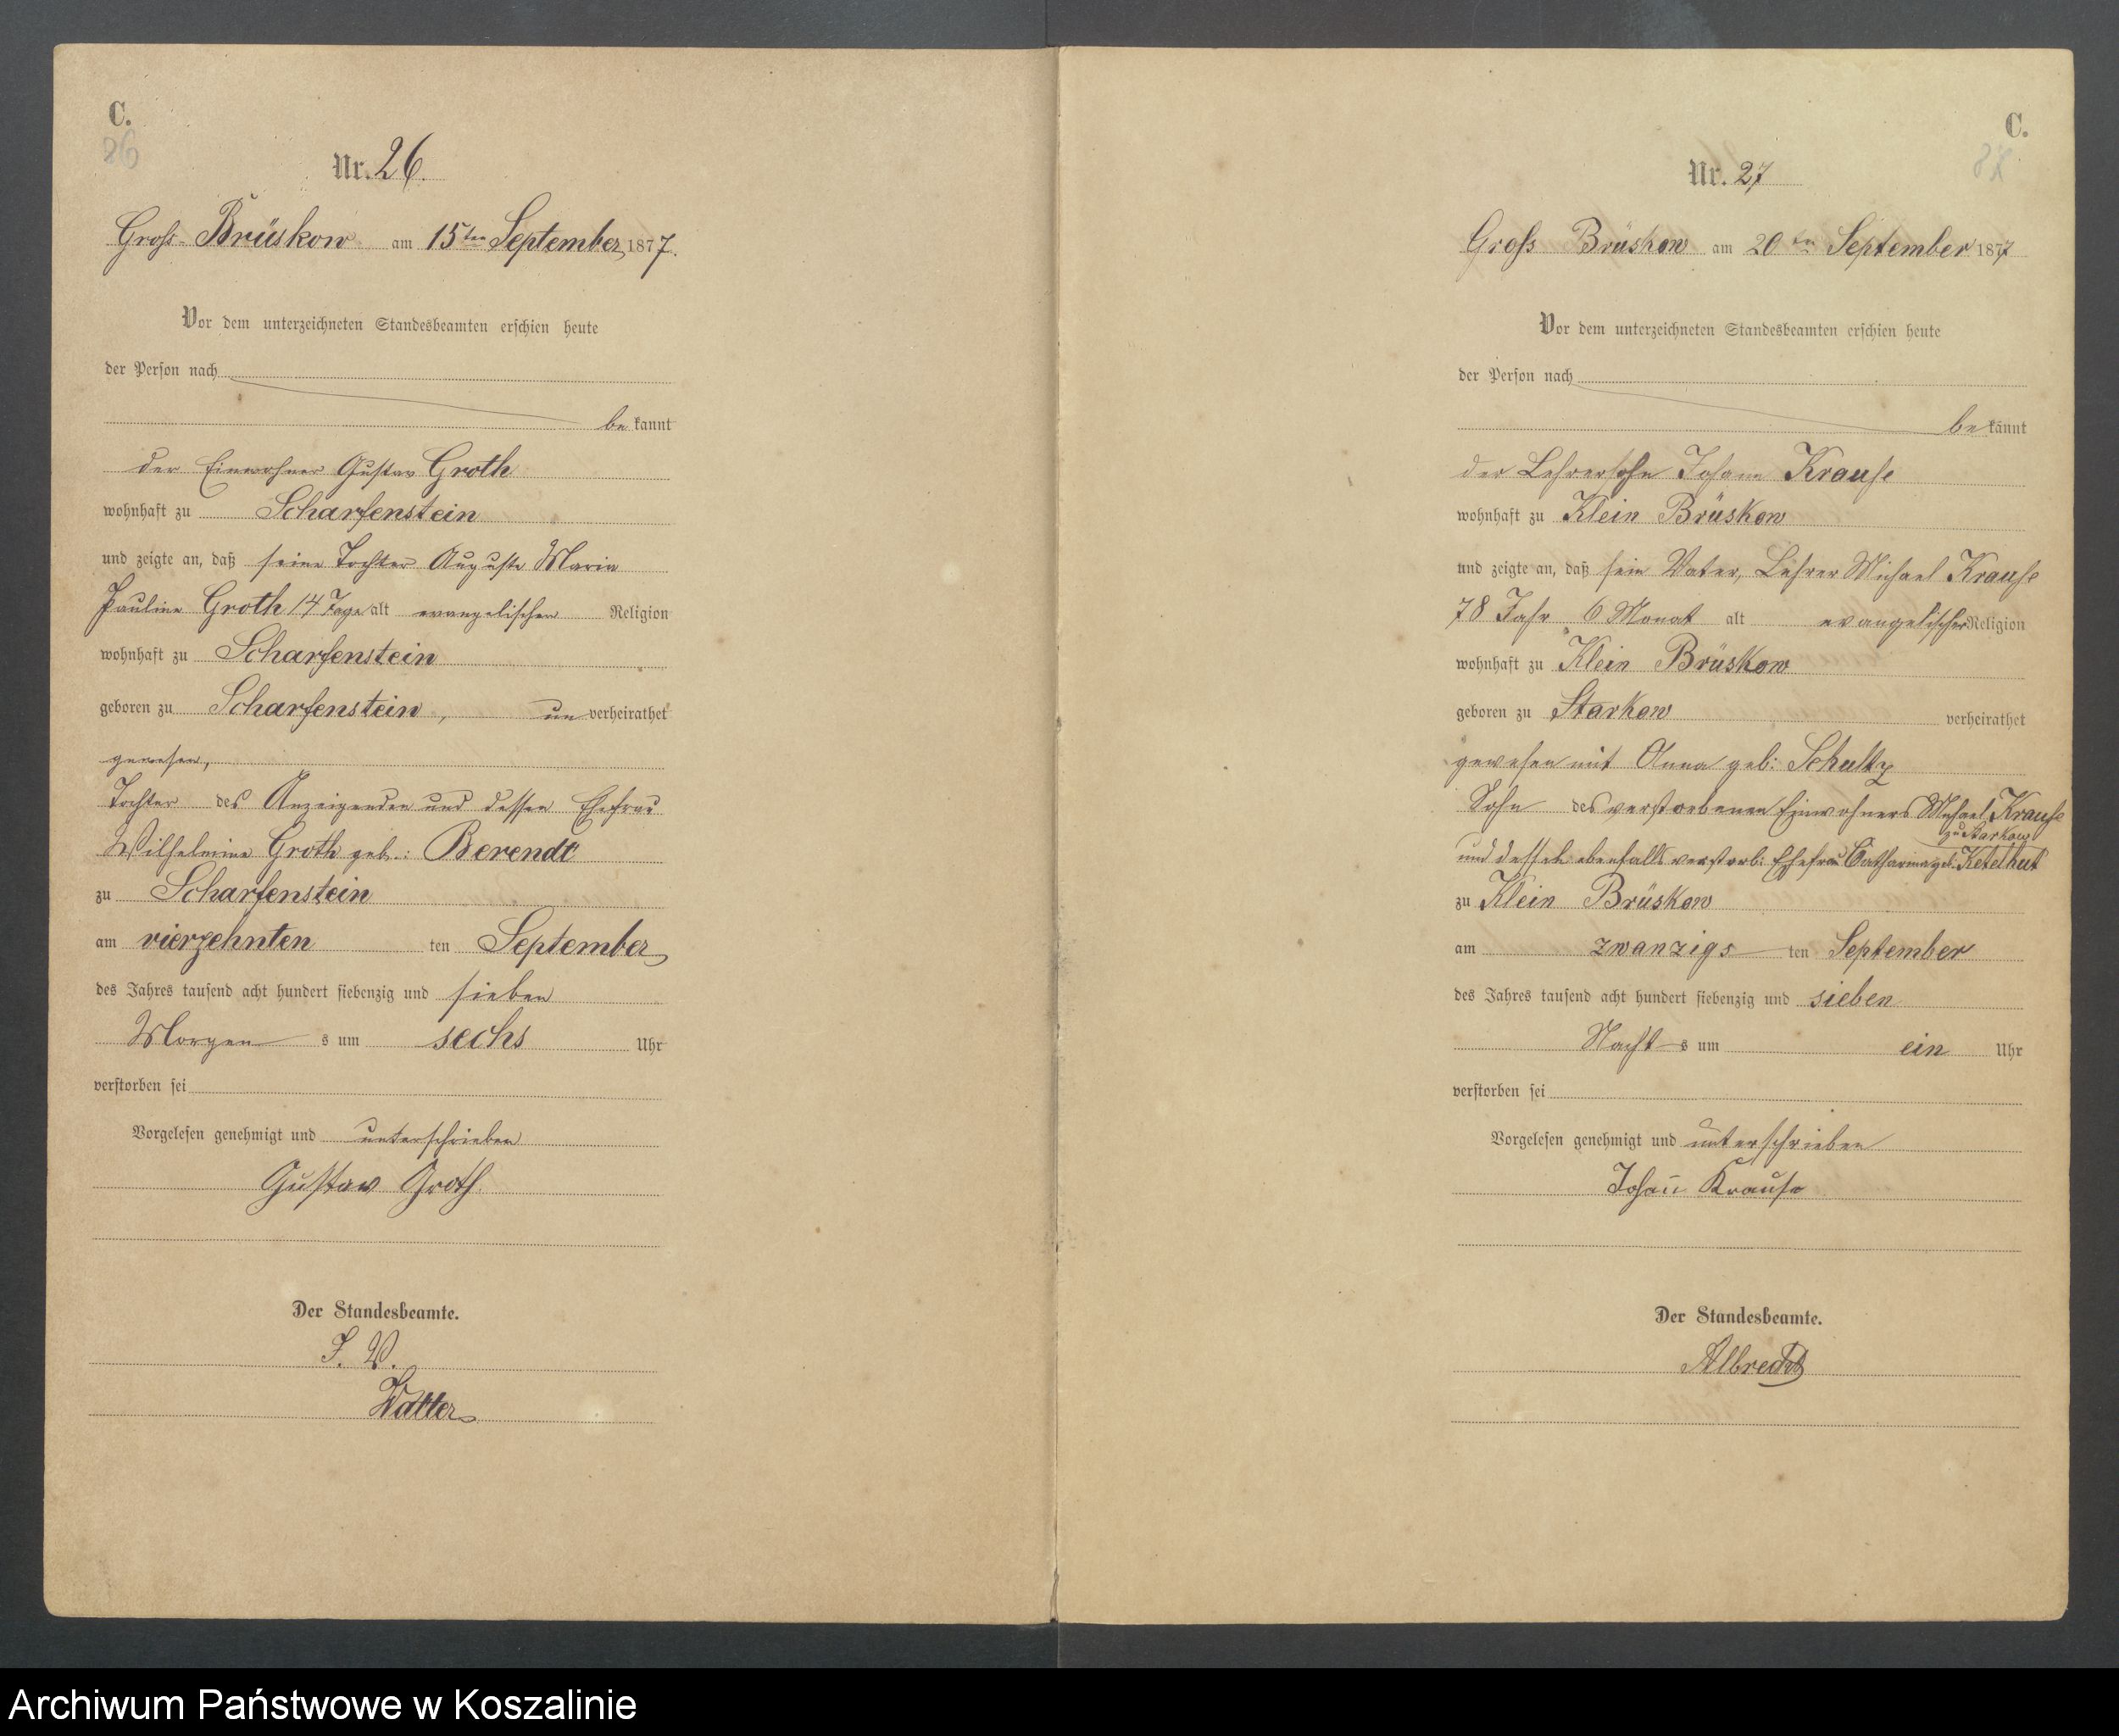 C.
26
Nr. 26.
Gross-Brüskow am 15ten September 1877.
Vor dem unterzeichneten Standesbeamten erschien heute
der Person nach
be kannt
der Einwohner Gustav Groth
wohnhaft zu Scharfenstein
und zeigte an, daß seine Tochter Auguste Maria
Pauline Groth 14 Tage alt evangelischer Religion
wohnhaft zu Scharfenstein
geboren zu Scharfenstein, un verheirathet
gewesen,
Tochter des Anzeigenden und dessen Ehefrau
Wilhelmine Groth geb.: Berendt
zu Scharfenstein
am vierzehnten ten September
des Jahres tausend acht hundert siebenzig und sieben
Morgen s um sechs Uhr
verstorben sei
Vorgelesen genehmigt und unterschrieben
Gustav Groth
Der Standesbeamte.
J. V.
Walter
C.
Nr. 27
Gross Brüskow am 20ten September 1877
Vor dem unterzeichneten Standesbeamten erschien heute
der Person nach
be kannt
der Lehrersohn Johann Krause
wohnhaft zu Klein Brüskow
und zeigte an, daß sein Vater, Lehrer Michael Krause
78 Jahr 6 Monat alt evangelischer Religion
wohnhaft zu Klein Brüskow
geboren zu Starkow verheirathet
gewesen mit Anna geb: Schultz
Sohn des verstorbenen Einwohners Michael Krause
zu Starkow
und dessen ebenfalls verstorb: Ehefrau Catharina geb: Ketelhut
zu Klein Brüskow
am zwanzigs ten September
des Jahres tausend acht hundert siebenzig und sieben
Nacht s um ein Uhr
verstorben sei
Vorgelesen genehmigt und unterschrieben
Johañ Krause
Der Standesbeamte.
Albrecht
Archiwum Państwowe w Koszalinie